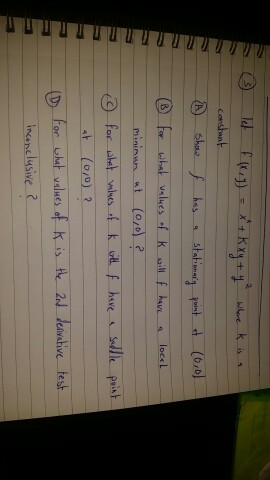 ⑤ let f(x,y) = x⁴ + Kxy + y² where K is a
constant
Ⓐ show f has a stationary point at (0,0)
Ⓑ for what values of K will f have a local
minimum at (0,0) ?
Ⓒ for what values of K will f have a saddle point
at (0,0) ?
Ⓓ for what values of K is the 2nd derivative test
inconclusive ?